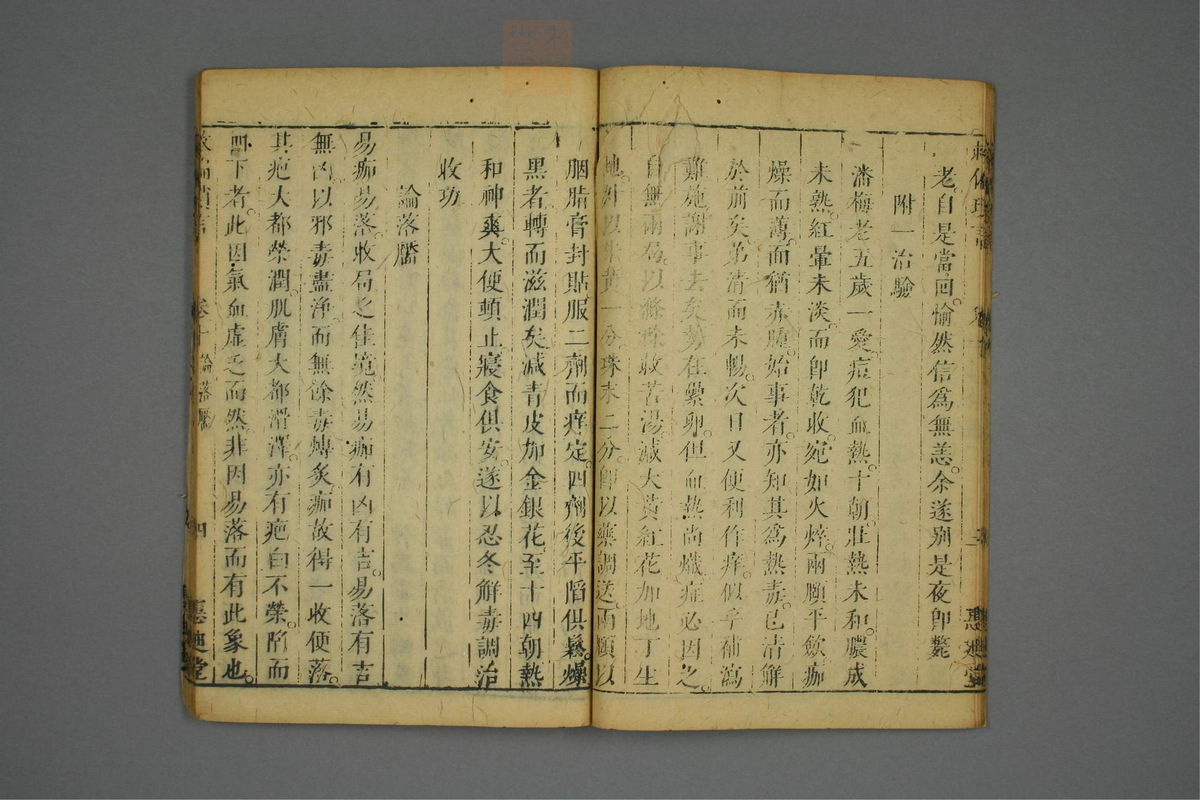 老自是當回愉然信爲無恙余遂別是夜即斃
附一治驗
潘梅老五歲一愛痘犯血熱十朝壯熱未和膿成
未熟紅暈未淡而即乾收宛如火烙兩頤平歛痂
燥而薄而猶赤膿始事者亦知其爲熱毒已清解
於前矣弟清而未暢次日又便利作痒似乎補瀉
難施謝事去矣勢在纍卵但血熱尚熾症必因之
自無兩局以滌收苦湯減大黃紅花加地丁生
地以黃一分珠末二分即以藥調送兩頤以
胭脂膏封貼服二劑而痒定四劑後平陷俱鬆燥
黑者轉而滋潤矣減青皮加金銀花至十四朝熱
和神爽大便頓止寢食俱安遂以忍冬解毒調治
收功
論落靨
易痂易落收局之佳範然易痂有凶有吉易落有吉
無凶以邪毒盡淨而無餘毒煿炙痂故得一收便落
其疤大都榮潤肌膚大都滑澤亦有疤白不榮陷而
凹下者此因氣血虛乏而然非因易落而有此象也
卷十 論落靨
四
惠迪堂